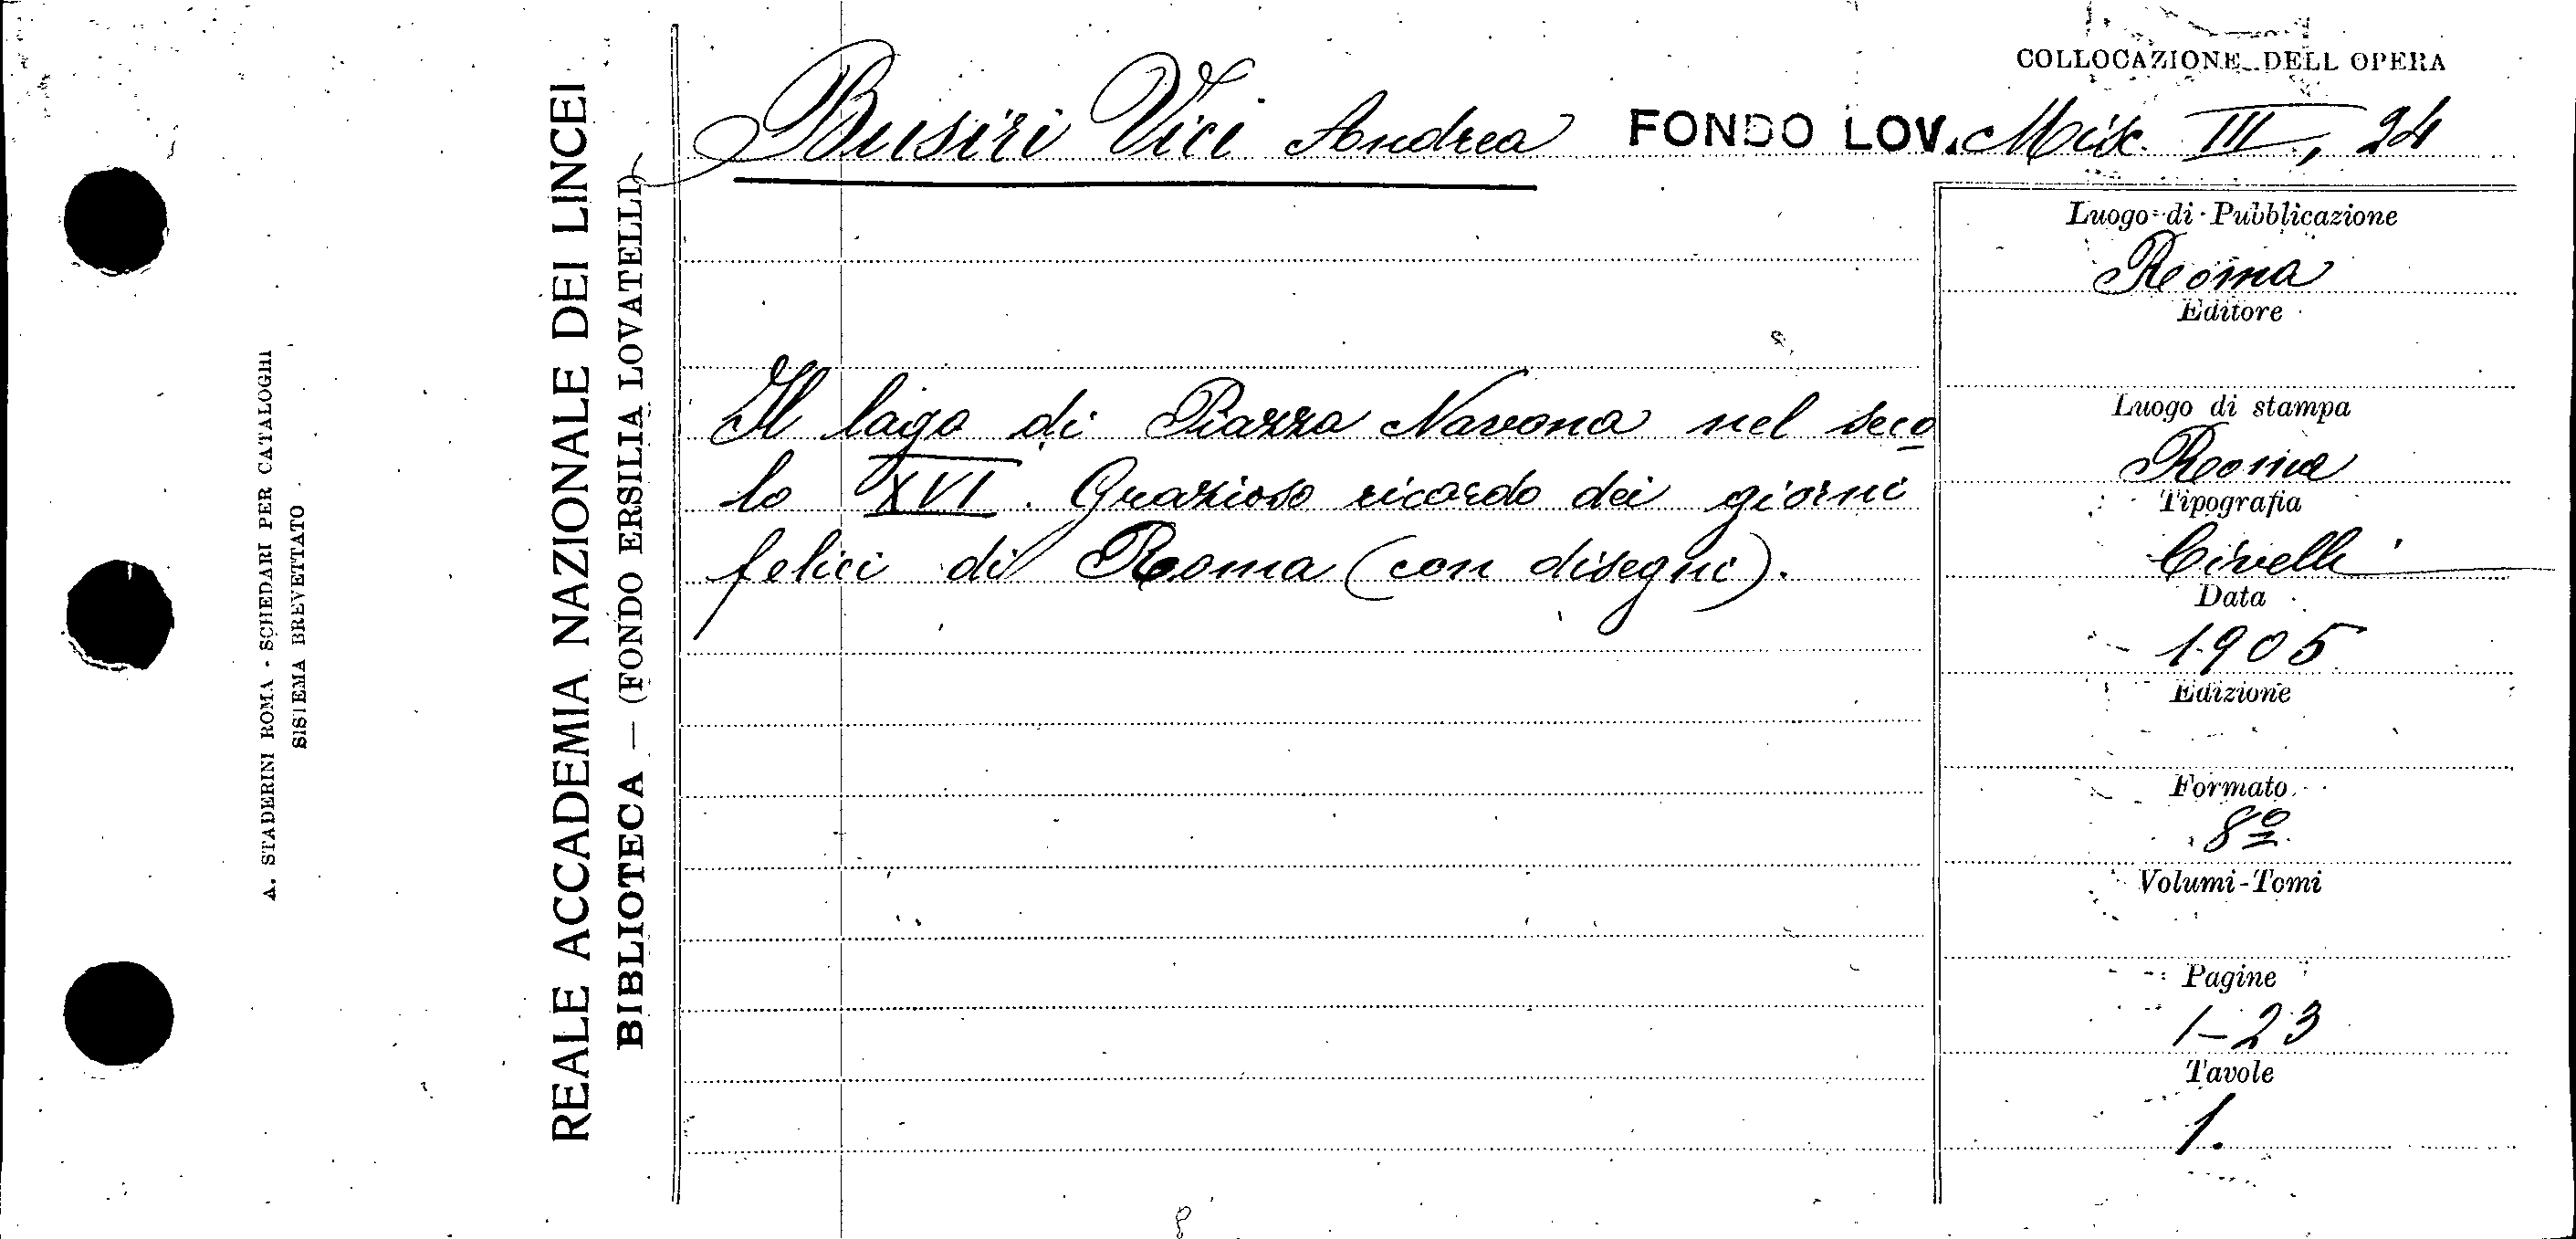 A. STADERINI ROMA - SCHEDARI PER CATALOGHI
SISTEMA BREVETTATO
REALE ACCADEMIA NAZIONALE DEI LINCEI
BIBLIOTECA — (FONDO ERSILIA LOVATELLI)
COLLOCAZIONE DELL OPERA
Busiri Vici Andrea FONDO LOV. Misc. III, 24
Il lago di Piazza Navona nel seco
lo XVI. Grazioso ricordo dei giorni
felici di Roma (con disegni).
Luogo di Pubblicazione
Roma
Editore
Luogo di stampa
Roma
Tipografia
Civelli
Data
1905
Edizione
Formato
8º
Volumi-Tomi
Pagine
1-23
Tavole
1.
8